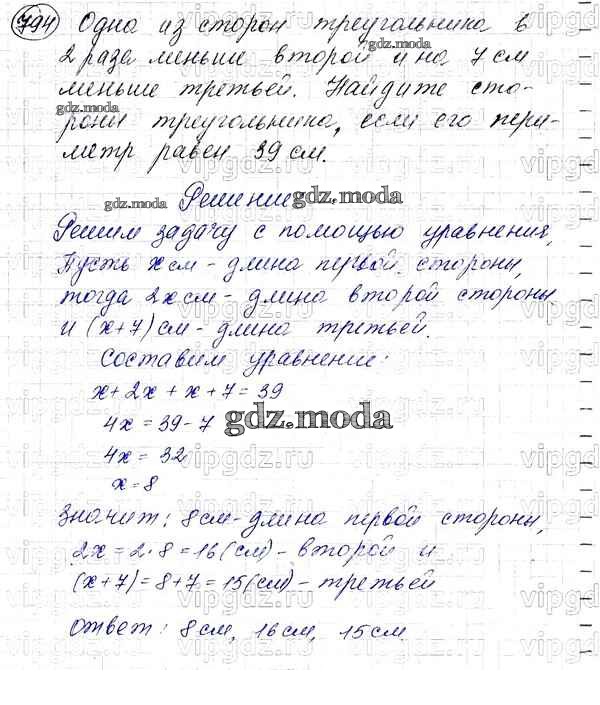 794 Одна из сторон треугольника в
2 раза меньше второй и на 7 см
меньше третьей. Найдите сто-
роны треугольника, если его пери-
метр равен 39 см.
Решение
Решим задачу с помощью уравнения,
Пусть x см - длина первой стороны,
тогда 2x см - длина второй стороны
и (x+7) см - длина третьей.
Составим уравнение:
x + 2x + x + 7 = 39
4x = 39 - 7
4x = 32
x = 8
Значит: 8 см - длина первой стороны,
2x = 2·8 = 16 (см) - второй и
(x+7) = 8+7 = 15 (см) - третьей
Ответ: 8 см, 16 см, 15 см
gdz.moda
gdz.moda
gdz.moda
gdz.moda
gdz.moda
vipgdz.ru